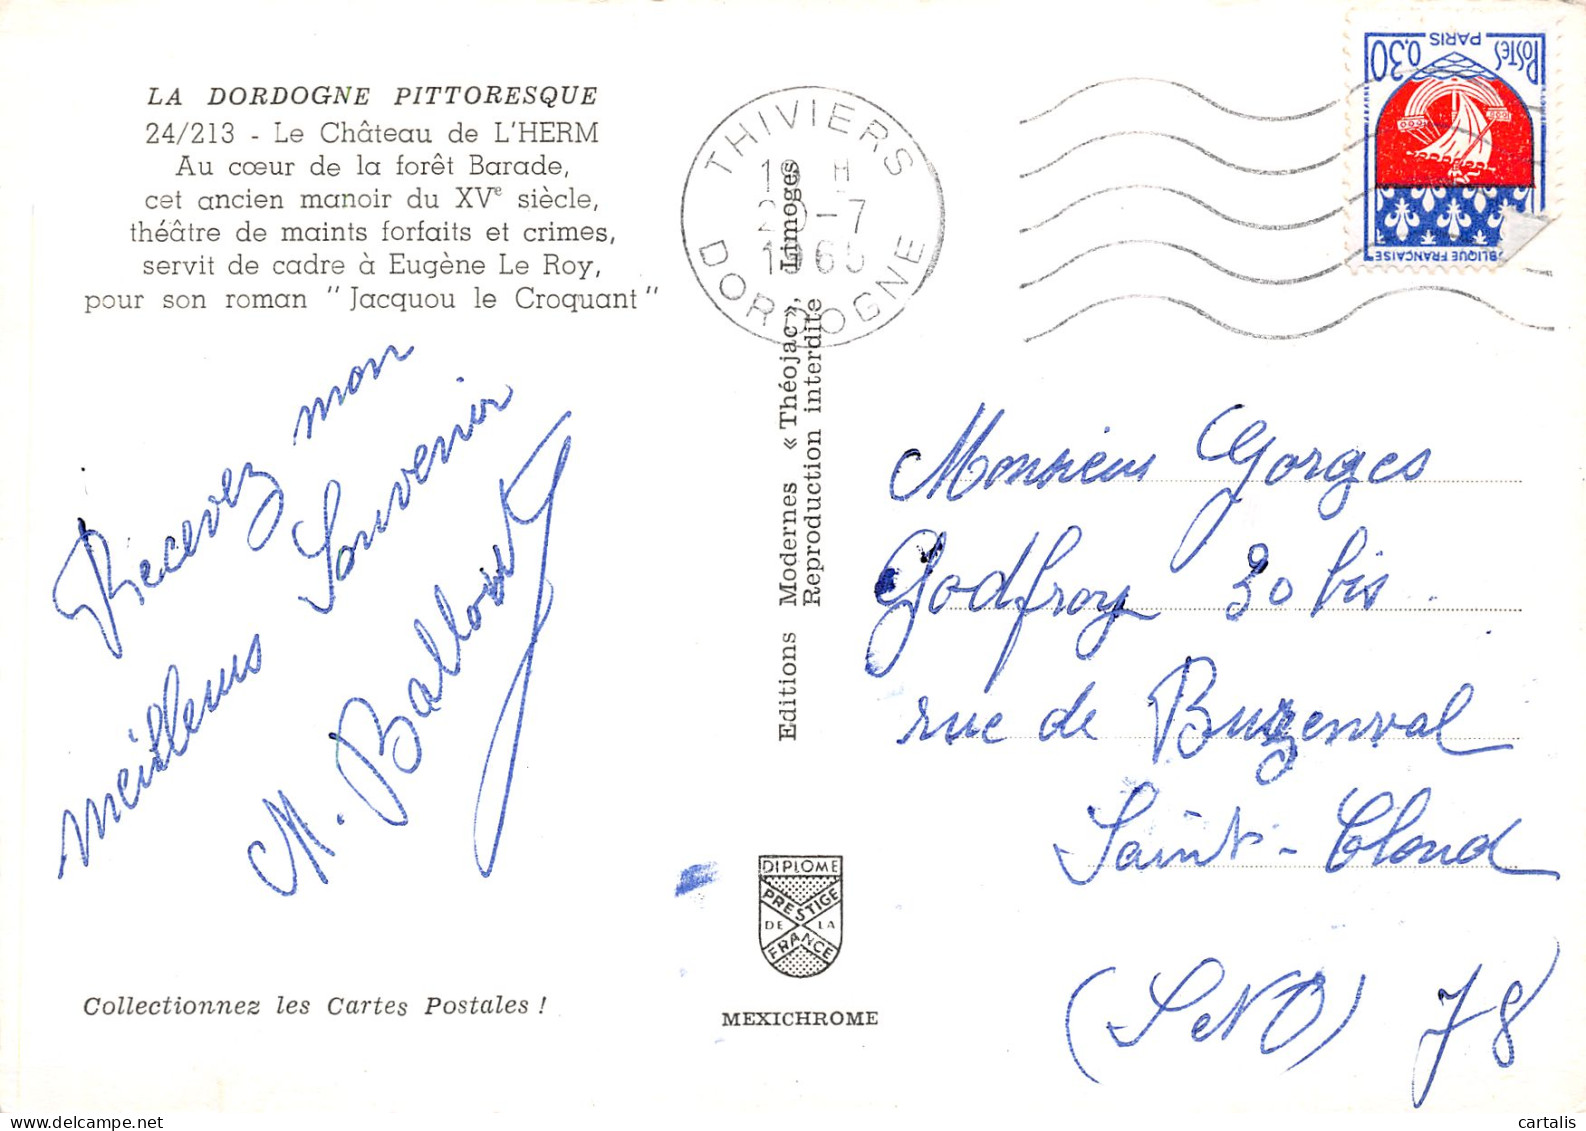 LA DORDOGNE PITTORESQUE
24/213 - Le Château de L'HERM
Au cœur de la forêt Barade,
cet ancien manoir du XVe siècle,
théâtre de maints forfaits et crimes,
servit de cadre à Eugène Le Roy,
pour son roman "Jacquou le Croquant"
Recevez mon
meilleurs Souvenir
M.
Collectionnez les Cartes Postales !
THIVIERS
H
-7
DORDOGNE
Editions Modernes « Théojac », Limoges
Reproduction interdite
DIPLOME
PRESTIGE
DE LA
FRANCE
MEXICHROME
POSTES 0,30
PARIS
BLIQUE FRANCAISE
Monsieur Gorges
Godfroy 30 bis
rue de Buzenval
Saint-Cloud
(S et O) 78
cartalis